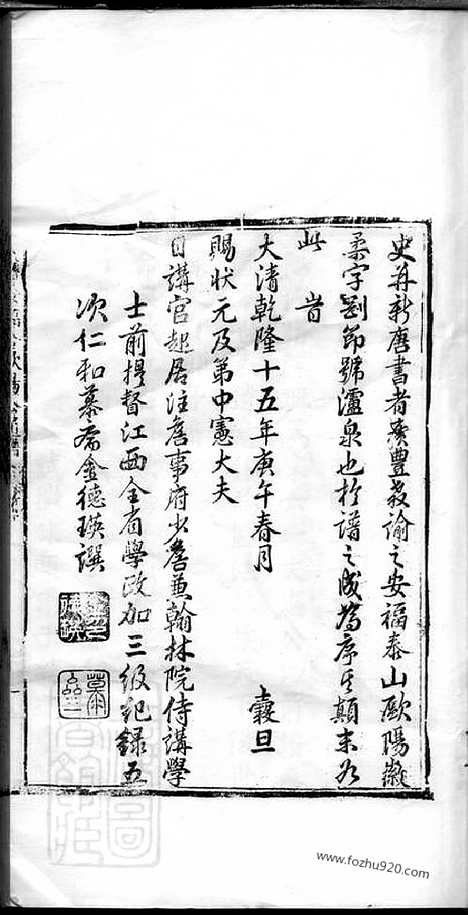 史并新唐書者廣豐教諭之安福泰山歐陽
柔字劉節號瀘泉也於譜之成為序其顛末如
此時
大清乾隆十五年庚午春月 穀旦
賜狀元及第中憲大夫
日講官起居注詹事府少詹兼翰林院侍講學
士前提督江西全省學政加三級紀錄五
次仁和慕齋金德瑛譔
www.fozhu920.com